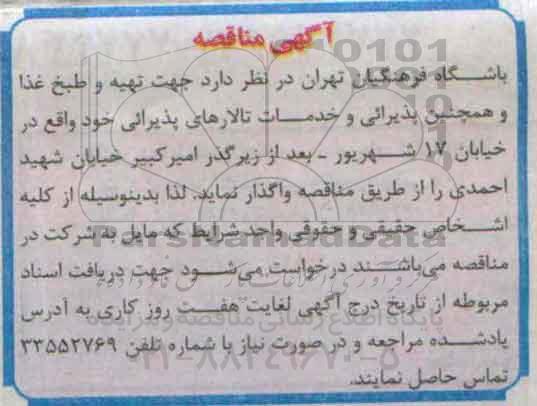 آگهی مناقصه
باشگاه فرهنگیان تهران در نظر دارد جهت تهیه و طبخ غذا
و همچنین پذیرائی و خدمات تالارهای پذیرائی خود واقع در
خیابان ۱۷ شهریور ـ بعد از زیرگذر امیرکبیر خیابان شهید
احمدی را از طریق مناقصه واگذار نماید. لذا بدینوسیله از کلیه
اشخاص حقیقی و حقوقی واجد شرایط که مایل به شرکت در
مناقصه می‌باشند درخواست می‌شود جهت دریافت اسناد
مربوطه از تاریخ درج آگهی لغایت هفت روز کاری به آدرس
یادشده مراجعه و در صورت نیاز با شماره تلفن ۳۳۵۵۲۷۶۹
تماس حاصل نمایند.
پایگاه اطلاع رسانی مناقصه و مزایده